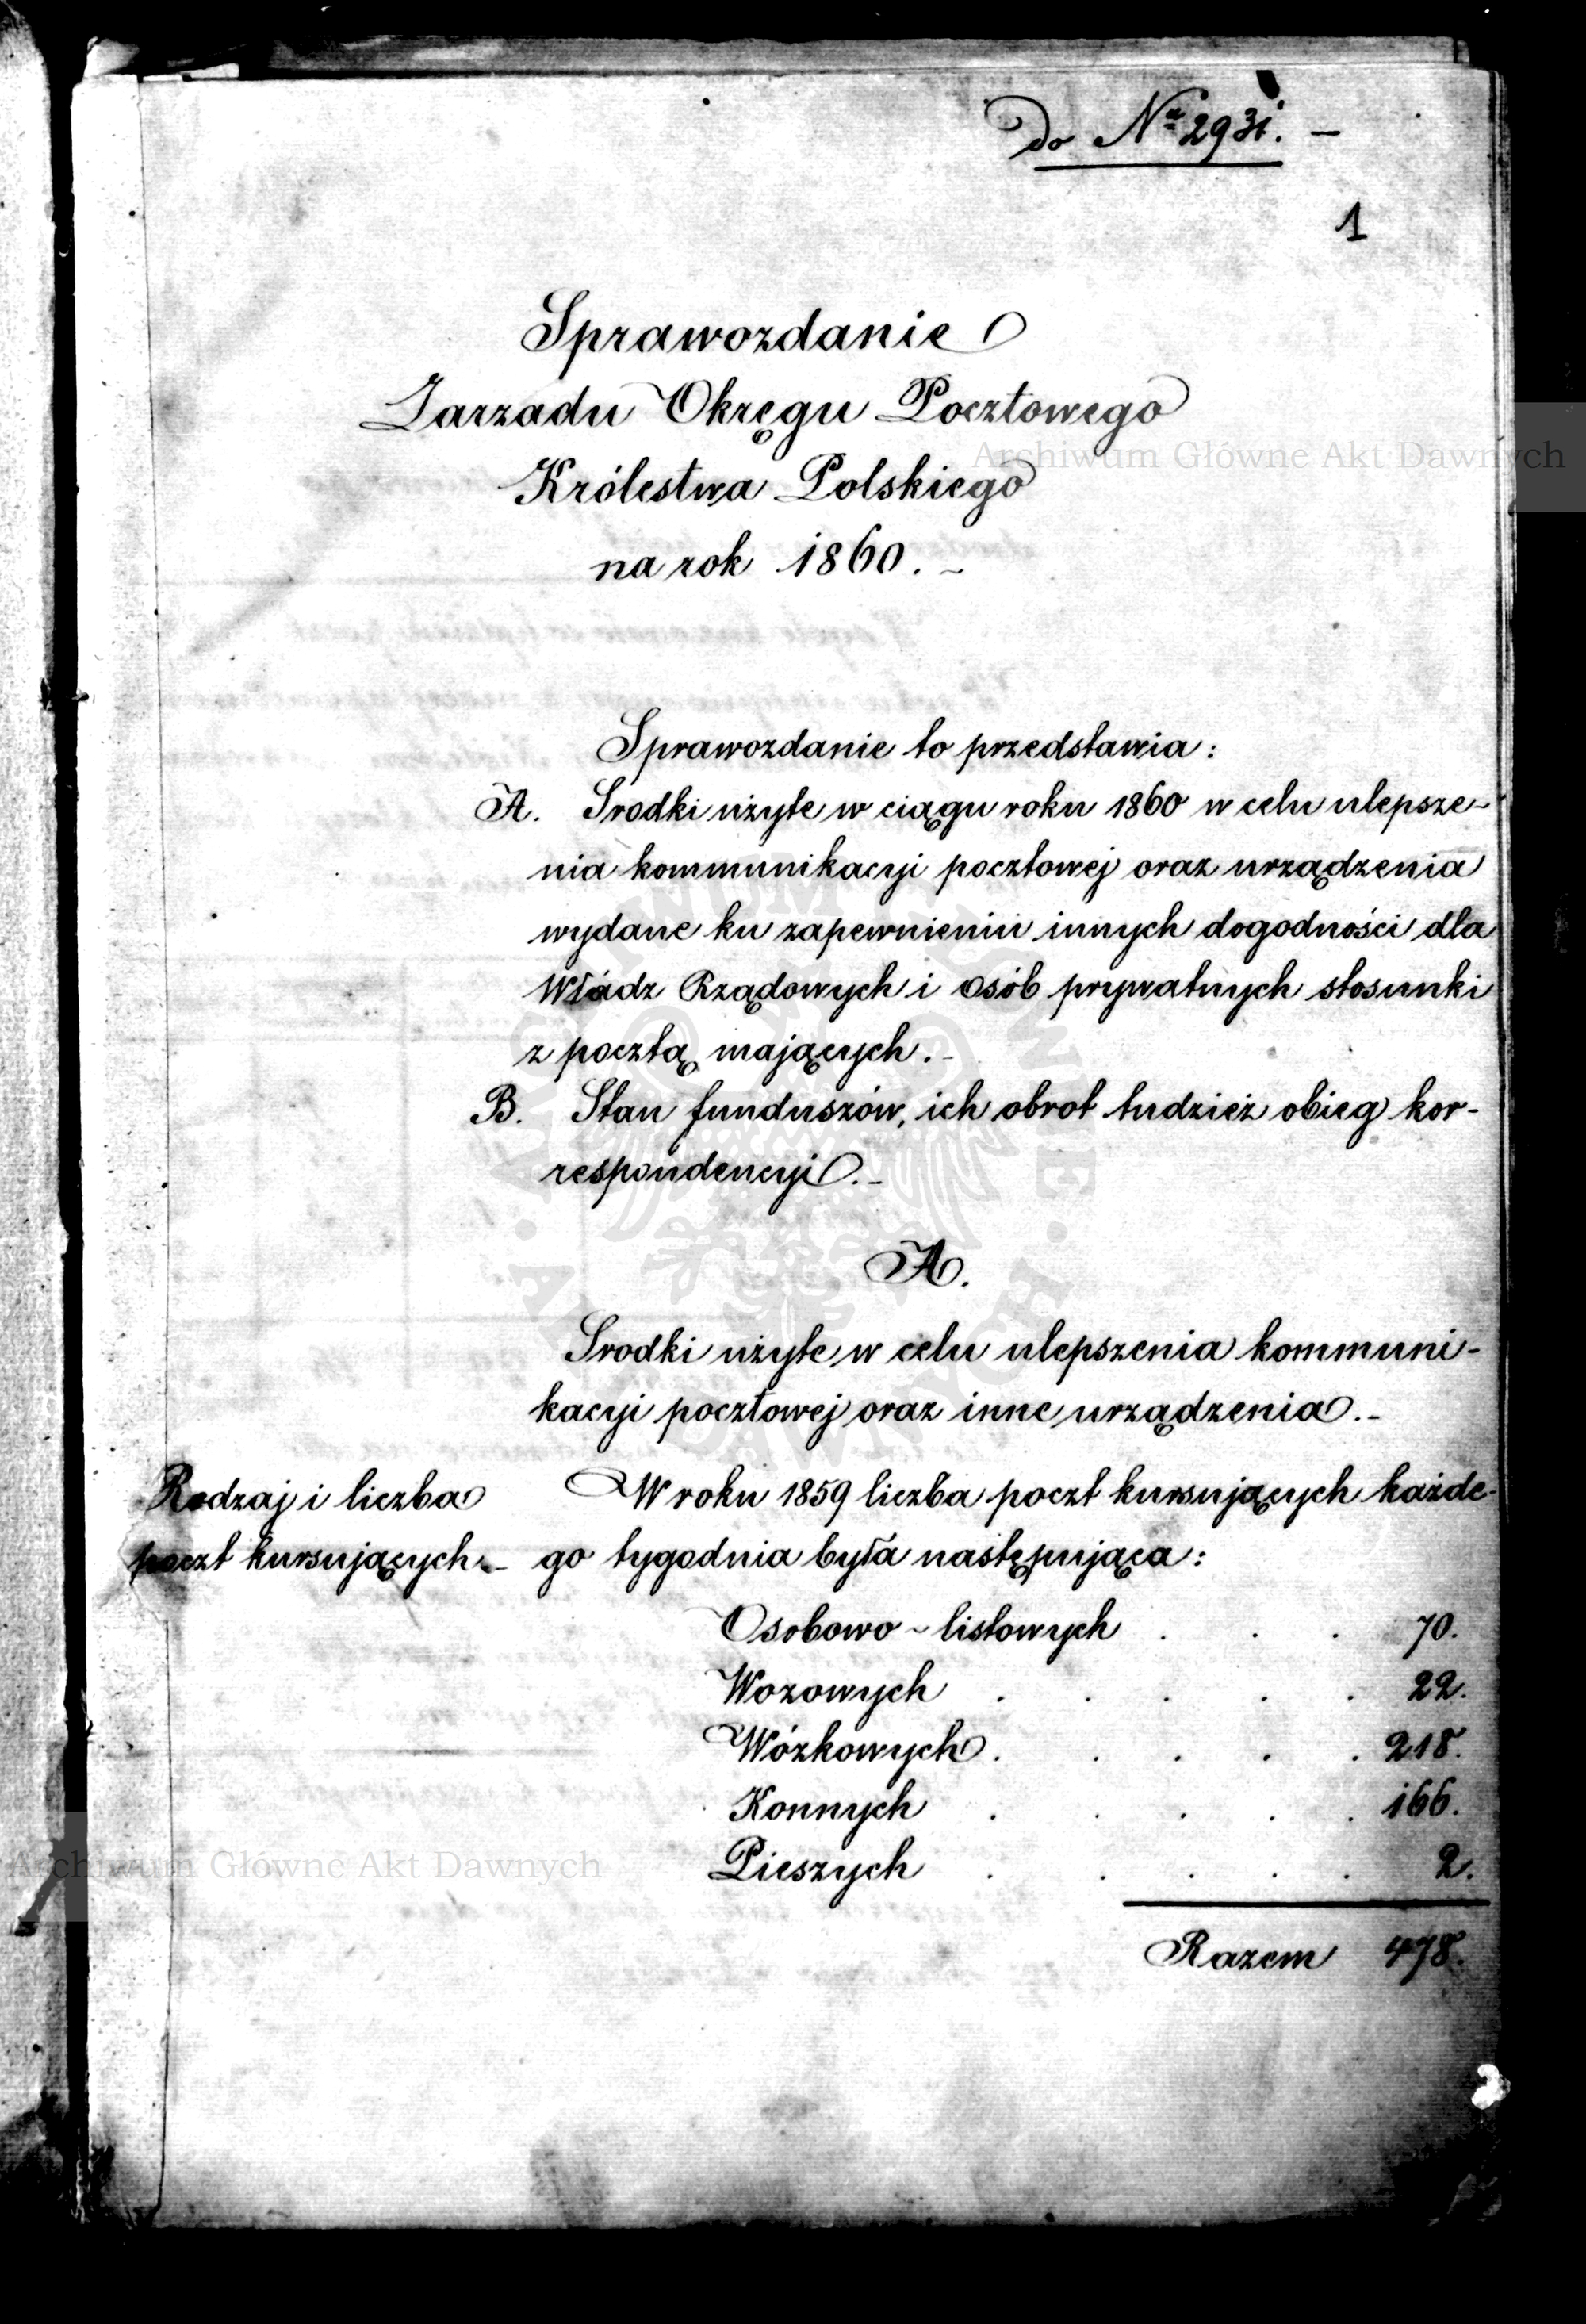 do Nr 2931. –
1
Sprawozdanie
Zarzadu Okręgu Pocztowego
Archiwum Główne Akt Dawnych
Królestwa Polskiego
na rok 1860. –
Sprawozdanie to przedstawia:
A. Srodki użyte w ciągu roku 1860 w celu ulepsze-
nia kommunikacyi pocztowej oraz urządzenia
wydane ku zapewnieniu innych dogodności dla
Władz Rządowych i osób prywatnych stosunki
z pocztą mających. –
B. Stan funduszów, ich obrot tudzież obieg kor-
respondencyi. –
A.
Srodki użyte w celu ulepszenia kommuni-
kacyi pocztowej oraz inne urządzenia. –
Rodzaj i liczba
poczt kursujących. –
W roku 1859 liczba poczt kursujących każde-
go tygodnia była następująca:
Osobowo-listowych . . . 70.
Wozowych . . . . . 22.
Wózkowych . . . . . 218.
Konnych . . . . . 166.
Pieszych . . . . . 2.
Archiwum Główne Akt Dawnych
Razem 478.